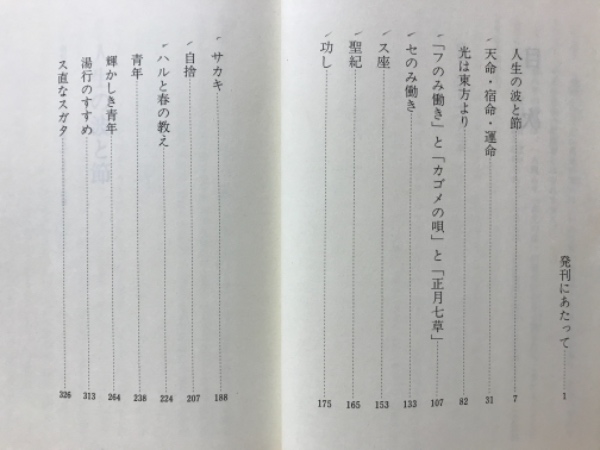 発刊にあたって 1
人生の波と節 7
天命・宿命・運命 31
光は東方より 82
「フのみ働き」と「カゴメの唄」と「正月七草」 107
セのみ働き 133
ス座 153
聖紀 165
功し 175
サカキ 188
自捨 207
ハルと春の教え 224
青年 238
輝かしき青年 264
湯行のすすめ 313
ス直なスガタ 326